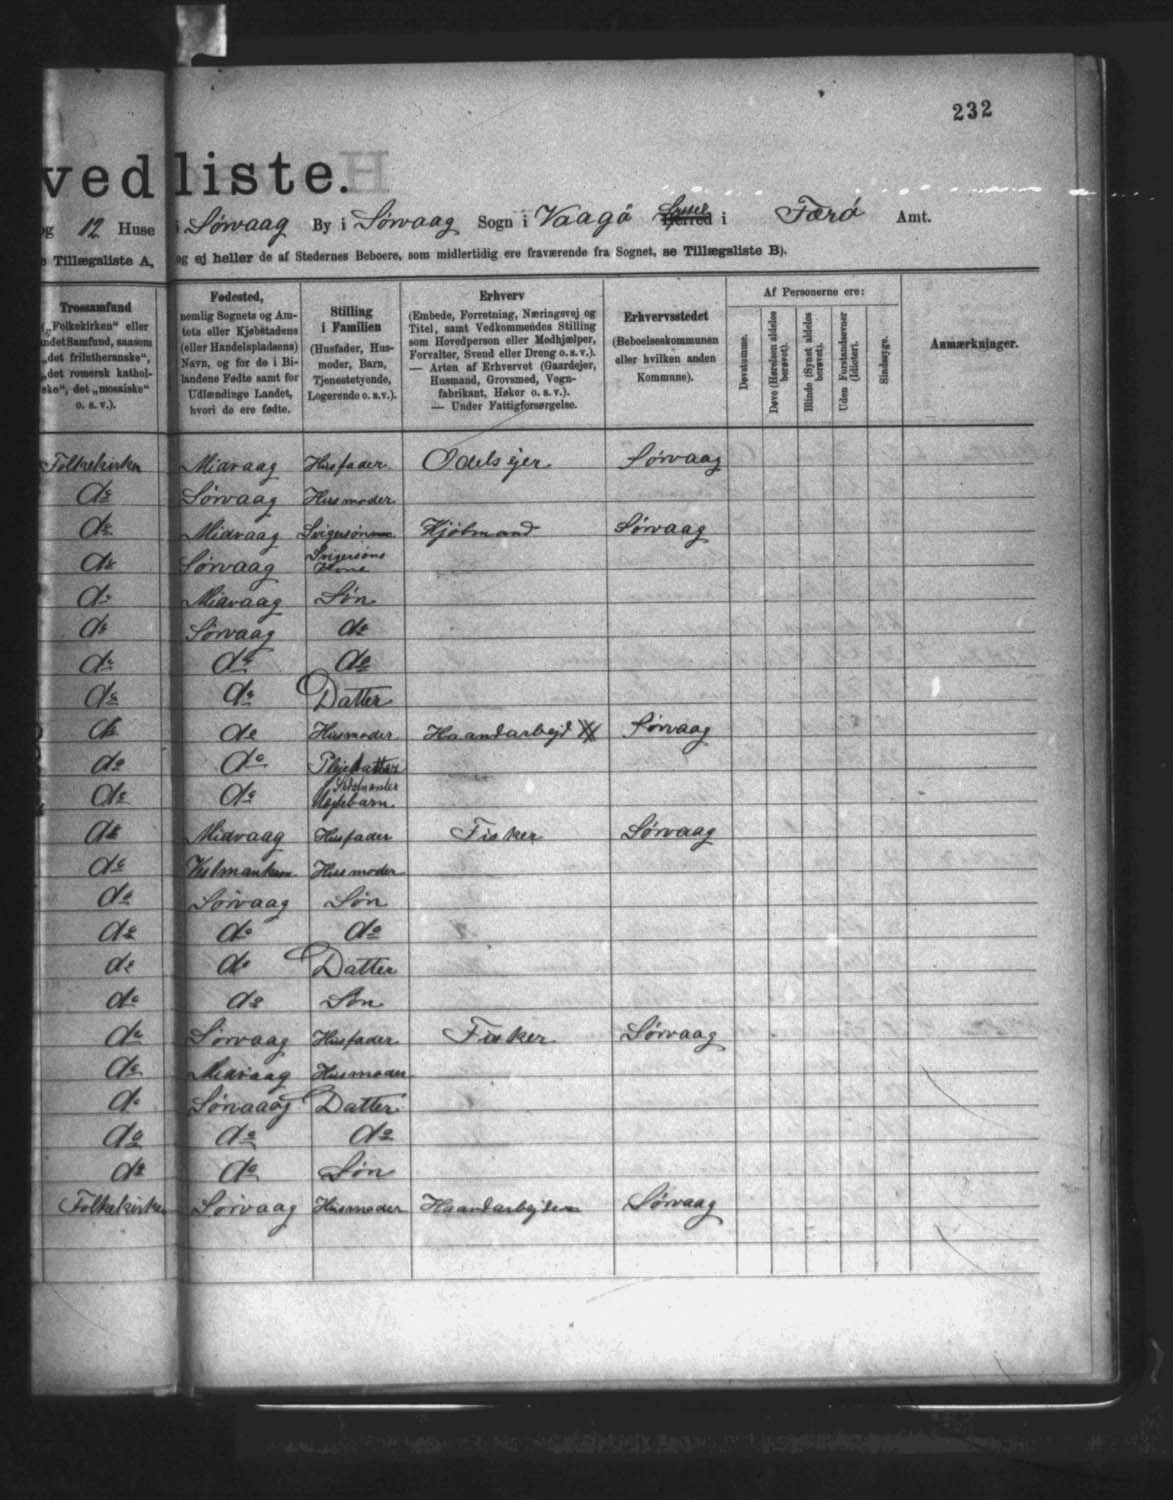 232
vedliste.
og 12 Huse i Sørvaag By i Sørvaag Sogn i Vaagø Herred i Færø Amt.
Tillægsliste A, og ej heller de af Stedernes Beboere, som midlertidig ere fraværende fra Sognet, se Tillægsliste B).
Trossamfund
(„Folkekirken“ eller
andet Samfund, saasom
„det frilutheranske“,
„det romersk kathol-
ske“, det „mosaiske“
o. s. v.).
Fødested,
nemlig Sognets og Am-
tets eller Kjøbstadens
(eller Handelspladsens)
Navn, og for de i Bi-
landene Fødte samt for
Udlændinge Landet,
hvori de ere fødte.
Stilling
i Familien
(Husfader, Hus-
moder, Barn,
Tjenestetyende,
Logerende o. s. v.).
Erhverv
(Embede, Forretning, Næringsvej og
Titel, samt Vedkommendes Stilling
som Hovedperson eller Medhjælper,
Forvalter, Svend eller Dreng o. s. v.).
— Arten af Erhvervet (Gaardejer,
Husmand, Grovsmed, Vogn-
fabrikant, Høker o. s. v.).
— Under Fattigforsørgelse.
Erhvervsstedet
(Beboelseskommunen
eller hvilken anden
Kommune).
Af Personerne ere:
Døvstumme.
Døve (Hørelsen aldeles
berøvet).
Blinde (Synet aldeles
berøvet).
Uden Forstandsevner
(Idioter).
Sindssyge.
Anmærkninger.
Folkekirken Midvaag Husfader Odelsejer Sørvaag
do Sørvaag Husmoder
do Midvaag Svigersøn Kjøbmand Sørvaag
do Sørvaag Svigersøns Kone
do Midvaag Søn
do Sørvaag do
do do do
do do Datter
do do Husmoder Haandarbejd Sørvaag
do do Plejedatter
do do Plejebarn
do Midvaag Husfader Fisker Sørvaag
do Husmoder
do Sørvaag Søn
do do do
do do Datter
do do Søn
do Sørvaag Husfader Fisker Sørvaag
do Midvaag Husmoder
do Sørvaag Datter
do do do
do do Søn
Folkekirken Sørvaag Husmoder Haandarbejde Sørvaag